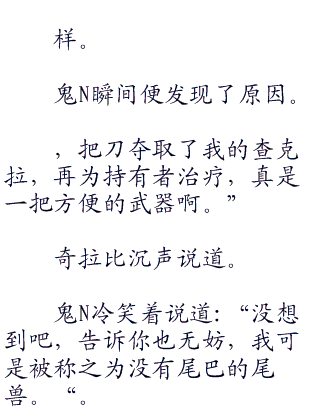 样。
鬼N瞬间便发现了原因。
，把刀夺取了我的查克
拉，再为持有者治疗，真是
一把方便的武器啊。”
奇拉比沉声说道。
鬼N冷笑着说道：“没想
到吧，告诉你也无妨，我可
是被称之为没有尾巴的尾
兽。“。